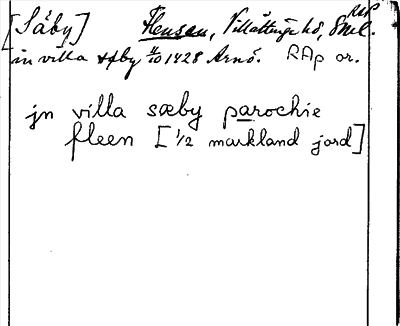 [Säby] Flensån, Villåttinge hd, Sml. RAP
in villa sæby 4/10 1428 Arnö. RAp or.
jn villa sæby parochie
fleen [1/2 markland jord]